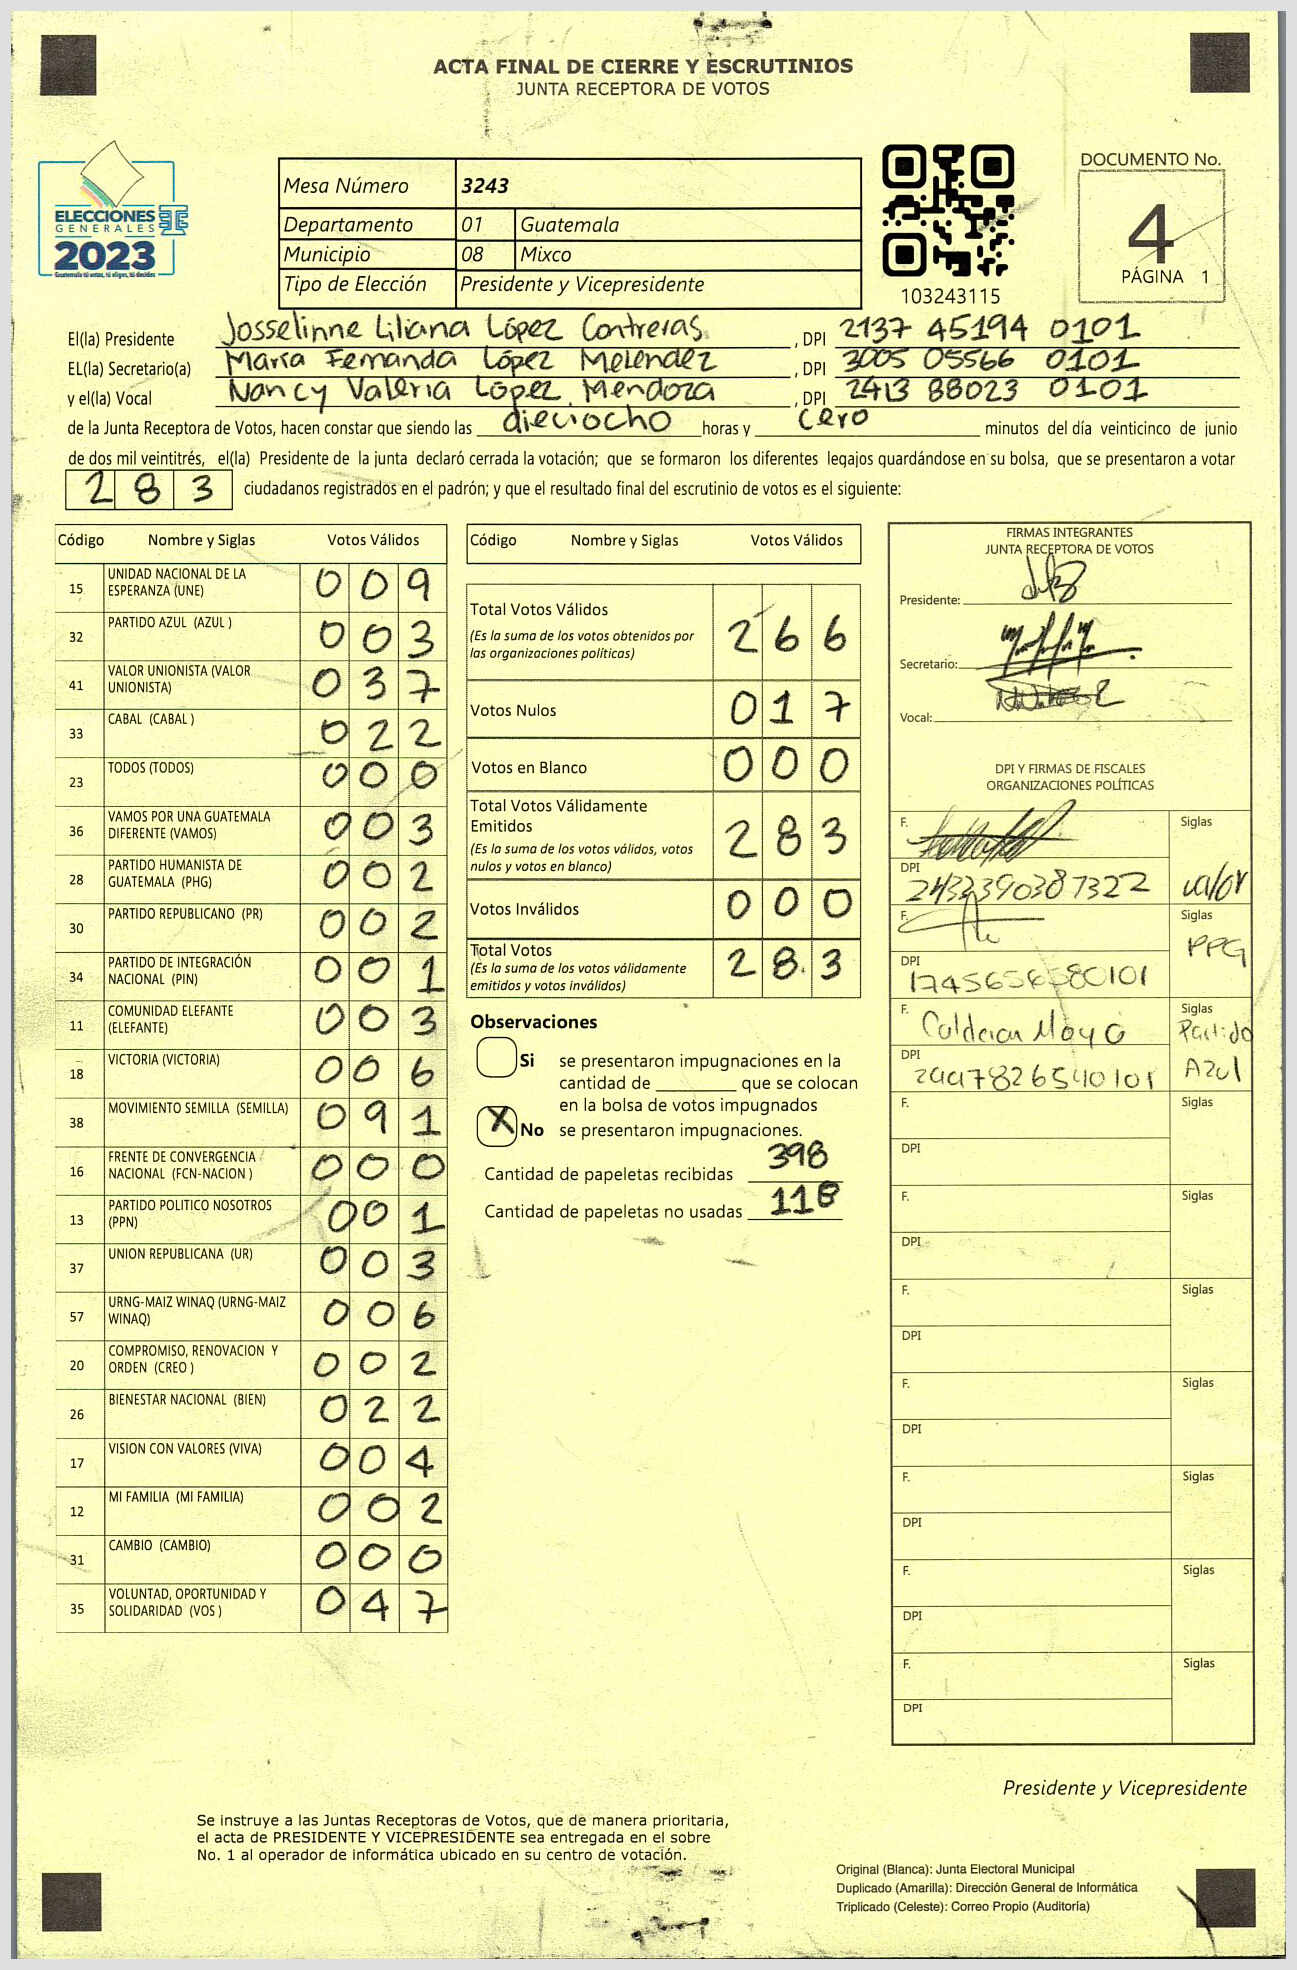 ACTA FINAL DE CIERRE Y ESCRUTINIOS
JUNTA RECEPTORA DE VOTOS
ELECCIONES
GENERALES
2023
Guatemala tú votas, tú eliges, tú decides
Mesa Número 3243
Departamento 01 Guatemala
Municipio 08 Mixco
Tipo de Elección Presidente y Vicepresidente
103243115
DOCUMENTO No.
4
PÁGINA 1
El(la) Presidente Josselinne Liliana López Contreras, DPI 2137 45194 0101
EL(la) Secretario(a) María Fernanda López Meléndez, DPI 3005 05566 0101
y el(la) Vocal Nancy Valeria López Mendoza, DPI 2413 88023 0101
de la Junta Receptora de Votos, hacen constar que siendo las dieciocho horas y cero minutos del día veinticinco de junio
de dos mil veintitrés, el(la) Presidente de la junta declaró cerrada la votación; que se formaron los diferentes legajos guardándose en su bolsa, que se presentaron a votar
283 ciudadanos registrados en el padrón; y que el resultado final del escrutinio de votos es el siguiente:
Código Nombre y Siglas Votos Válidos
15 UNIDAD NACIONAL DE LA ESPERANZA (UNE) 009
32 PARTIDO AZUL (AZUL ) 003
41 VALOR UNIONISTA (VALOR UNIONISTA) 037
33 CABAL (CABAL ) 022
23 TODOS (TODOS) 000
36 VAMOS POR UNA GUATEMALA DIFERENTE (VAMOS) 003
28 PARTIDO HUMANISTA DE GUATEMALA (PHG) 002
30 PARTIDO REPUBLICANO (PR) 002
34 PARTIDO DE INTEGRACIÓN NACIONAL (PIN) 001
11 COMUNIDAD ELEFANTE (ELEFANTE) 003
18 VICTORIA (VICTORIA) 006
38 MOVIMIENTO SEMILLA (SEMILLA) 091
16 FRENTE DE CONVERGENCIA NACIONAL (FCN-NACION ) 000
13 PARTIDO POLITICO NOSOTROS (PPN) 001
37 UNION REPUBLICANA (UR) 003
57 URNG-MAIZ WINAQ (URNG-MAIZ WINAQ) 006
20 COMPROMISO, RENOVACION Y ORDEN (CREO ) 002
26 BIENESTAR NACIONAL (BIEN) 022
17 VISION CON VALORES (VIVA) 004
12 MI FAMILIA (MI FAMILIA) 002
31 CAMBIO (CAMBIO) 000
35 VOLUNTAD, OPORTUNIDAD Y SOLIDARIDAD (VOS ) 047
Código Nombre y Siglas Votos Válidos
Total Votos Válidos 266
(Es la suma de los votos obtenidos por
las organizaciones políticas)
Votos Nulos 017
Votos en Blanco 000
Total Votos Válidamente
Emitidos 283
(Es la suma de los votos válidos, votos
nulos y votos en blanco)
Votos Inválidos 000
Total Votos 283
(Es la suma de los votos válidamente
emitidos y votos inválidos)
Observaciones
Si se presentaron impugnaciones en la
cantidad de ________ que se colocan
en la bolsa de votos impugnados
X No se presentaron impugnaciones.
Cantidad de papeletas recibidas 398
Cantidad de papeletas no usadas 118
FIRMAS INTEGRANTES
JUNTA RECEPTORA DE VOTOS
Presidente:
Secretario:
Vocal:
DPI Y FIRMAS DE FISCALES
ORGANIZACIONES POLÍTICAS
F. Siglas
DPI 2432390387322 valor
F. Siglas
DPI 1745656580101 PPG
F. Calderon Moya Siglas
DPI Partido Azul
F. Siglas
DPI
F. Siglas
DPI
F. Siglas
DPI
F. Siglas
DPI
F. Siglas
DPI
F. Siglas
DPI
F. Siglas
DPI
Presidente y Vicepresidente
Se instruye a las Juntas Receptoras de Votos, que de manera prioritaria,
el acta de PRESIDENTE Y VICEPRESIDENTE sea entregada en el sobre
No. 1 al operador de informática ubicado en su centro de votación.
Original (Blanca): Junta Electoral Municipal
Duplicado (Amarilla): Dirección General de Informática
Triplicado (Celeste): Correo Propio (Auditoría)